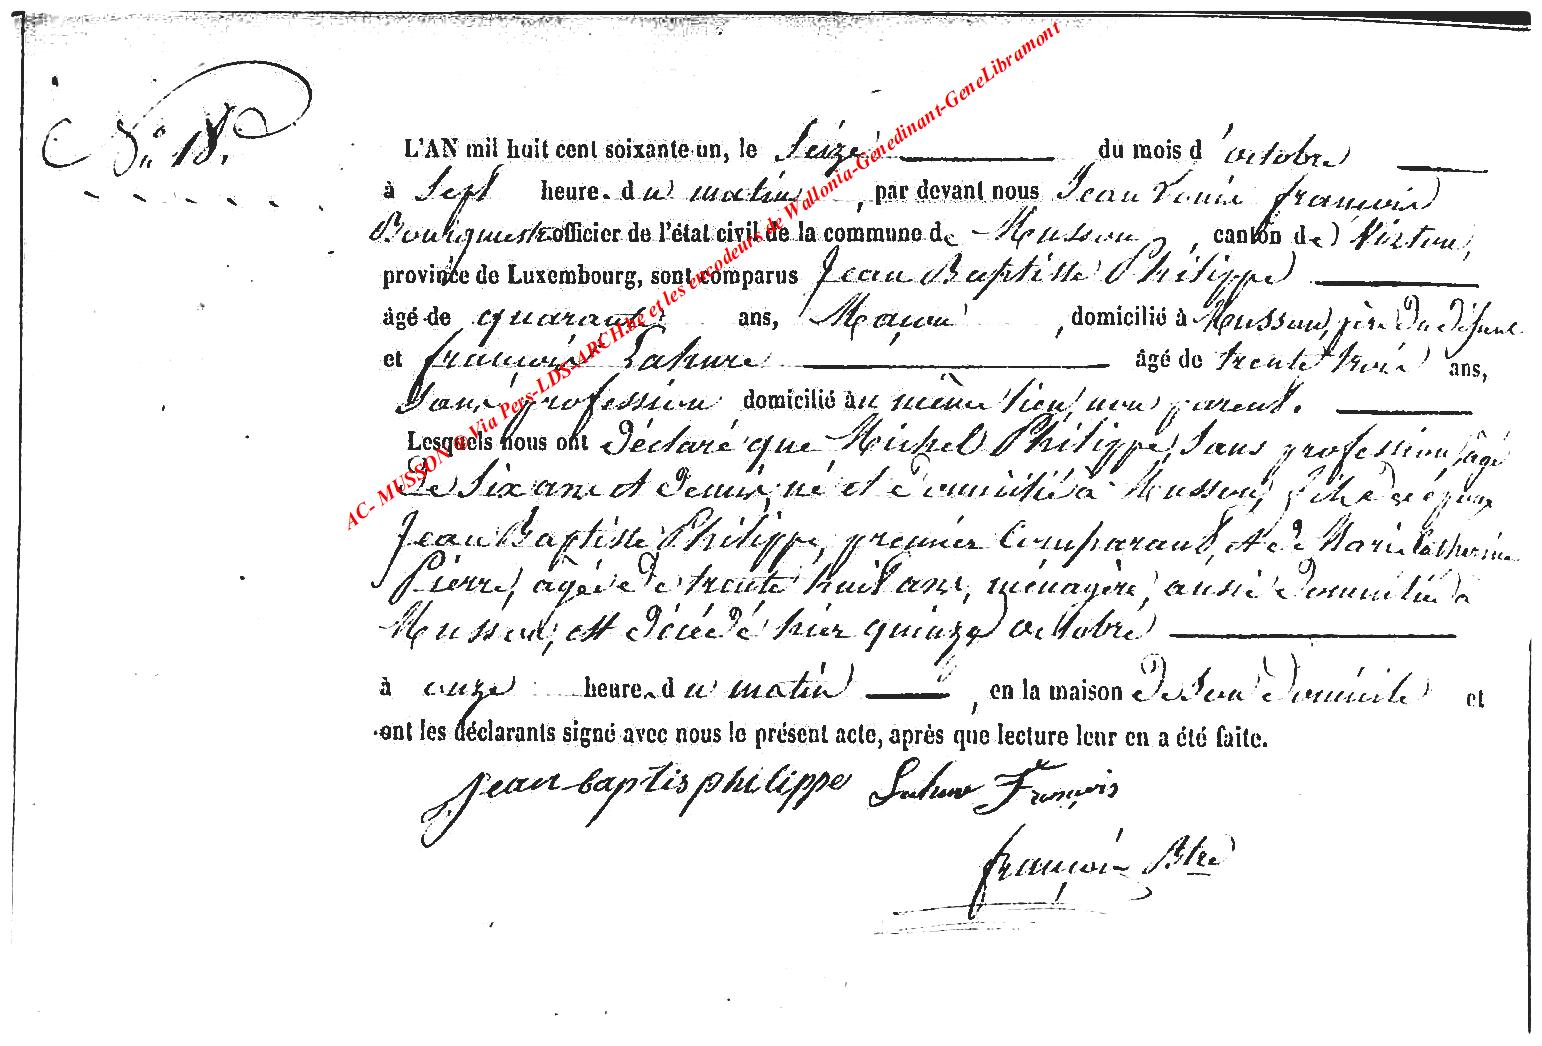 N.° 18.
L'AN mil huit cent soixante-un, le Seize du mois d'octobre
à Sept heure. du matin, par devant nous Jean Louis françois
Bourgmestre officier de l'état civil de la commune de Musson, canton de Virton,
province de Luxembourg, sont comparus Jean Baptiste Philippe
âgé de quarante ans, Maçon, domicilié à Musson, père du défunt
et françois Lahure âgé de trente trois ans,
Sans profession domicilié au même lieu, non parent.
Lesquels nous ont Déclaré que Michel Philippe, Sans profession, âgé
de Six ans et demi, né et domicilié à Musson, fils des époux
Jean Baptiste Philippe, premier Comparant, et de Marie Catherine
Pierre, âgée de trente huit ans, ménagère, aussi domiciliée à
Musson, est décédé hier quinze octobre
à onze heure. du matin, en la maison de Son domicile et
ont les déclarants signé avec nous le présent acte, après que lecture leur en a été faite.
jean baptis philippe Lahure François
françois Btre
AC- MUSSON @ Via Pers-LDS-ARCH.be et les encodeurs de Wallonia-Genedinant-GeneLibramont